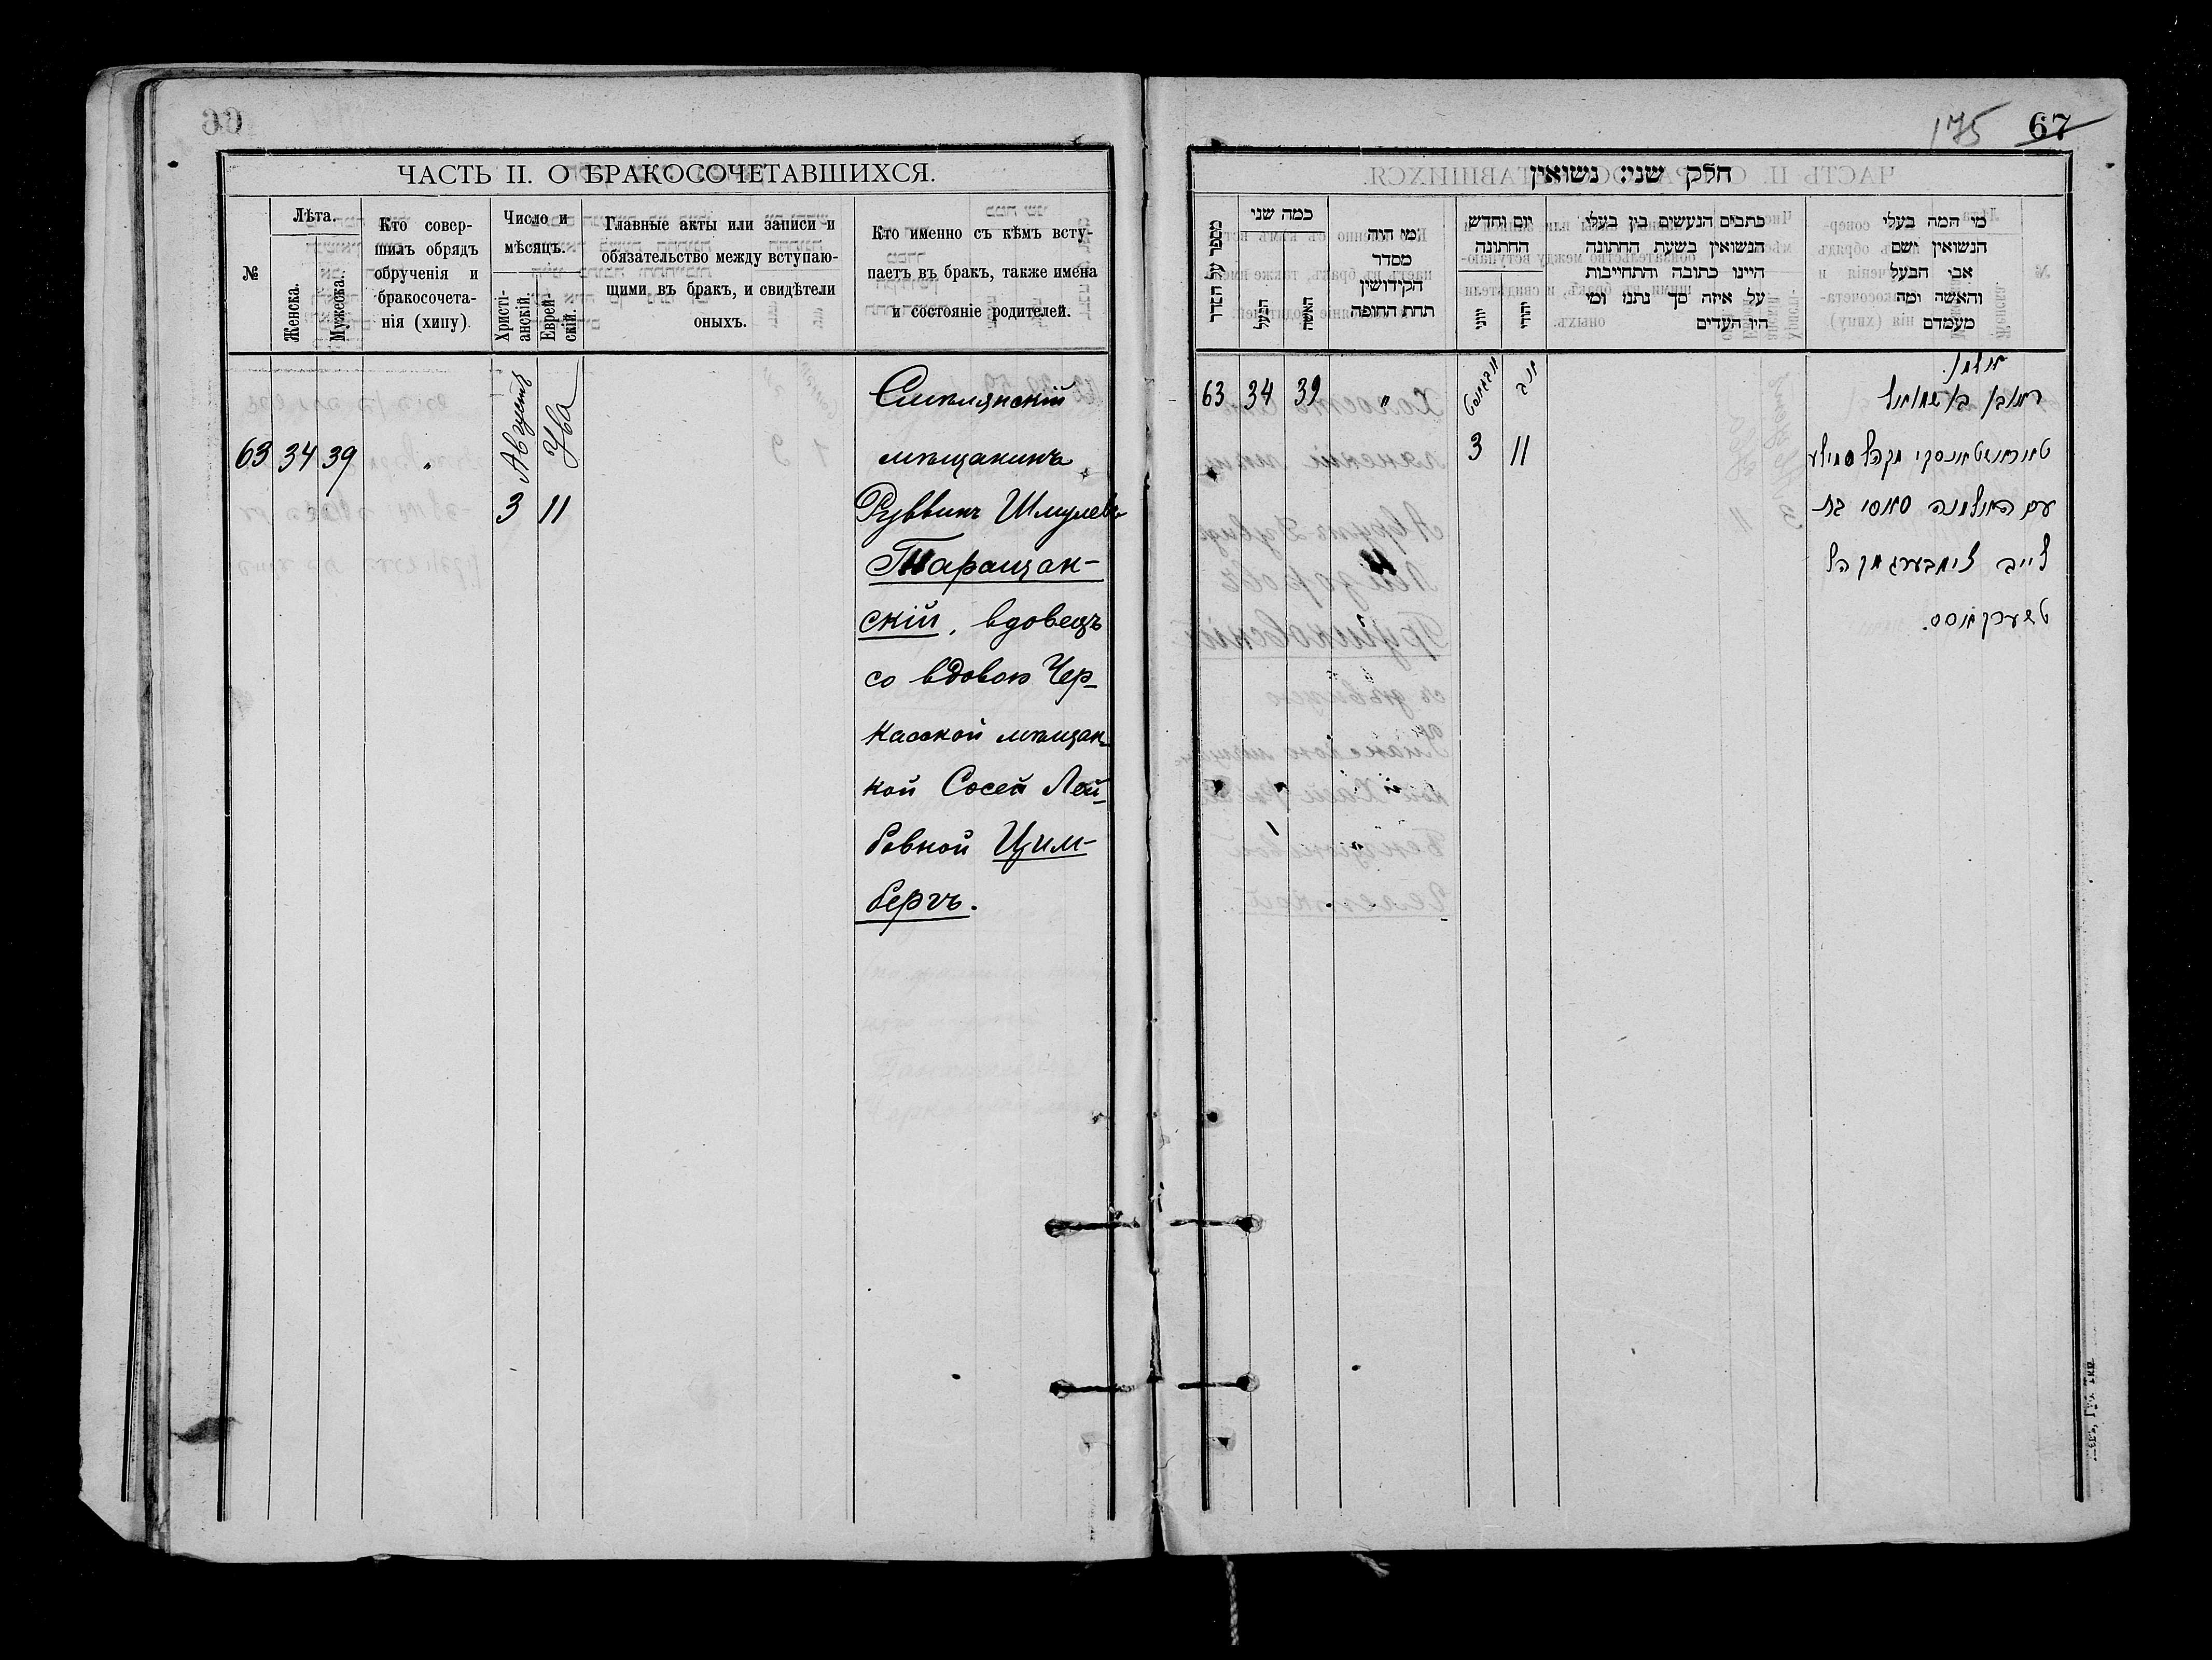 ЧАСТЬ II. О БРАКОСОЧЕТАВШИХСЯ.
№
Лѣта.
Женска.
Мужеска.
Кто совер-
шилъ обрядъ
обрученія и
бракосочета-
нія (хипу).
Число и
мѣсяцъ.
Христі-
анскій.
Еврей-
скій.
Главные акты или записи и
обязательство между вступаю-
щими въ бракъ, и свидѣтели
оныхъ.
Кто именно съ кѣмъ всту-
паетъ въ бракъ, также имена
и состояніе родителей.
63 34 39 „
Августъ
3
Ува
11
Смѣлянскій
мѣщанинъ
Руввинъ Шмулевъ
Таращан-
скій, вдовецъ
со вдовою Чер-
касской мѣщан-
кой Сосей Лей-
бовной Цим-
бергъ.
175 67
חלק שני: נשואין
מספר על הסדר
כמה שני
הבעל
האשה
מי היה
מסדר
הקידושין
תחת החופה
יום וחדש
החתונה
יוני
יהודי
כתבים הנעשים בין בעלי
הנשואין בשעת החתונה
היינו כתובה והתחייבות
על איזה סך נתנו ומי
היו העדים
מי המה בעלי
הנשואין ושם
אבי הבעל
והאשה ומה
מעמדם
63 34 39 „
אבגוסט
3
אב
11
אלמן
ראובן בן שמואל
טאראשטאנסקי מקהל סמילע
עם האלמנה סאסי בת
לייב צימבערג מקהל
טשערקאסס.